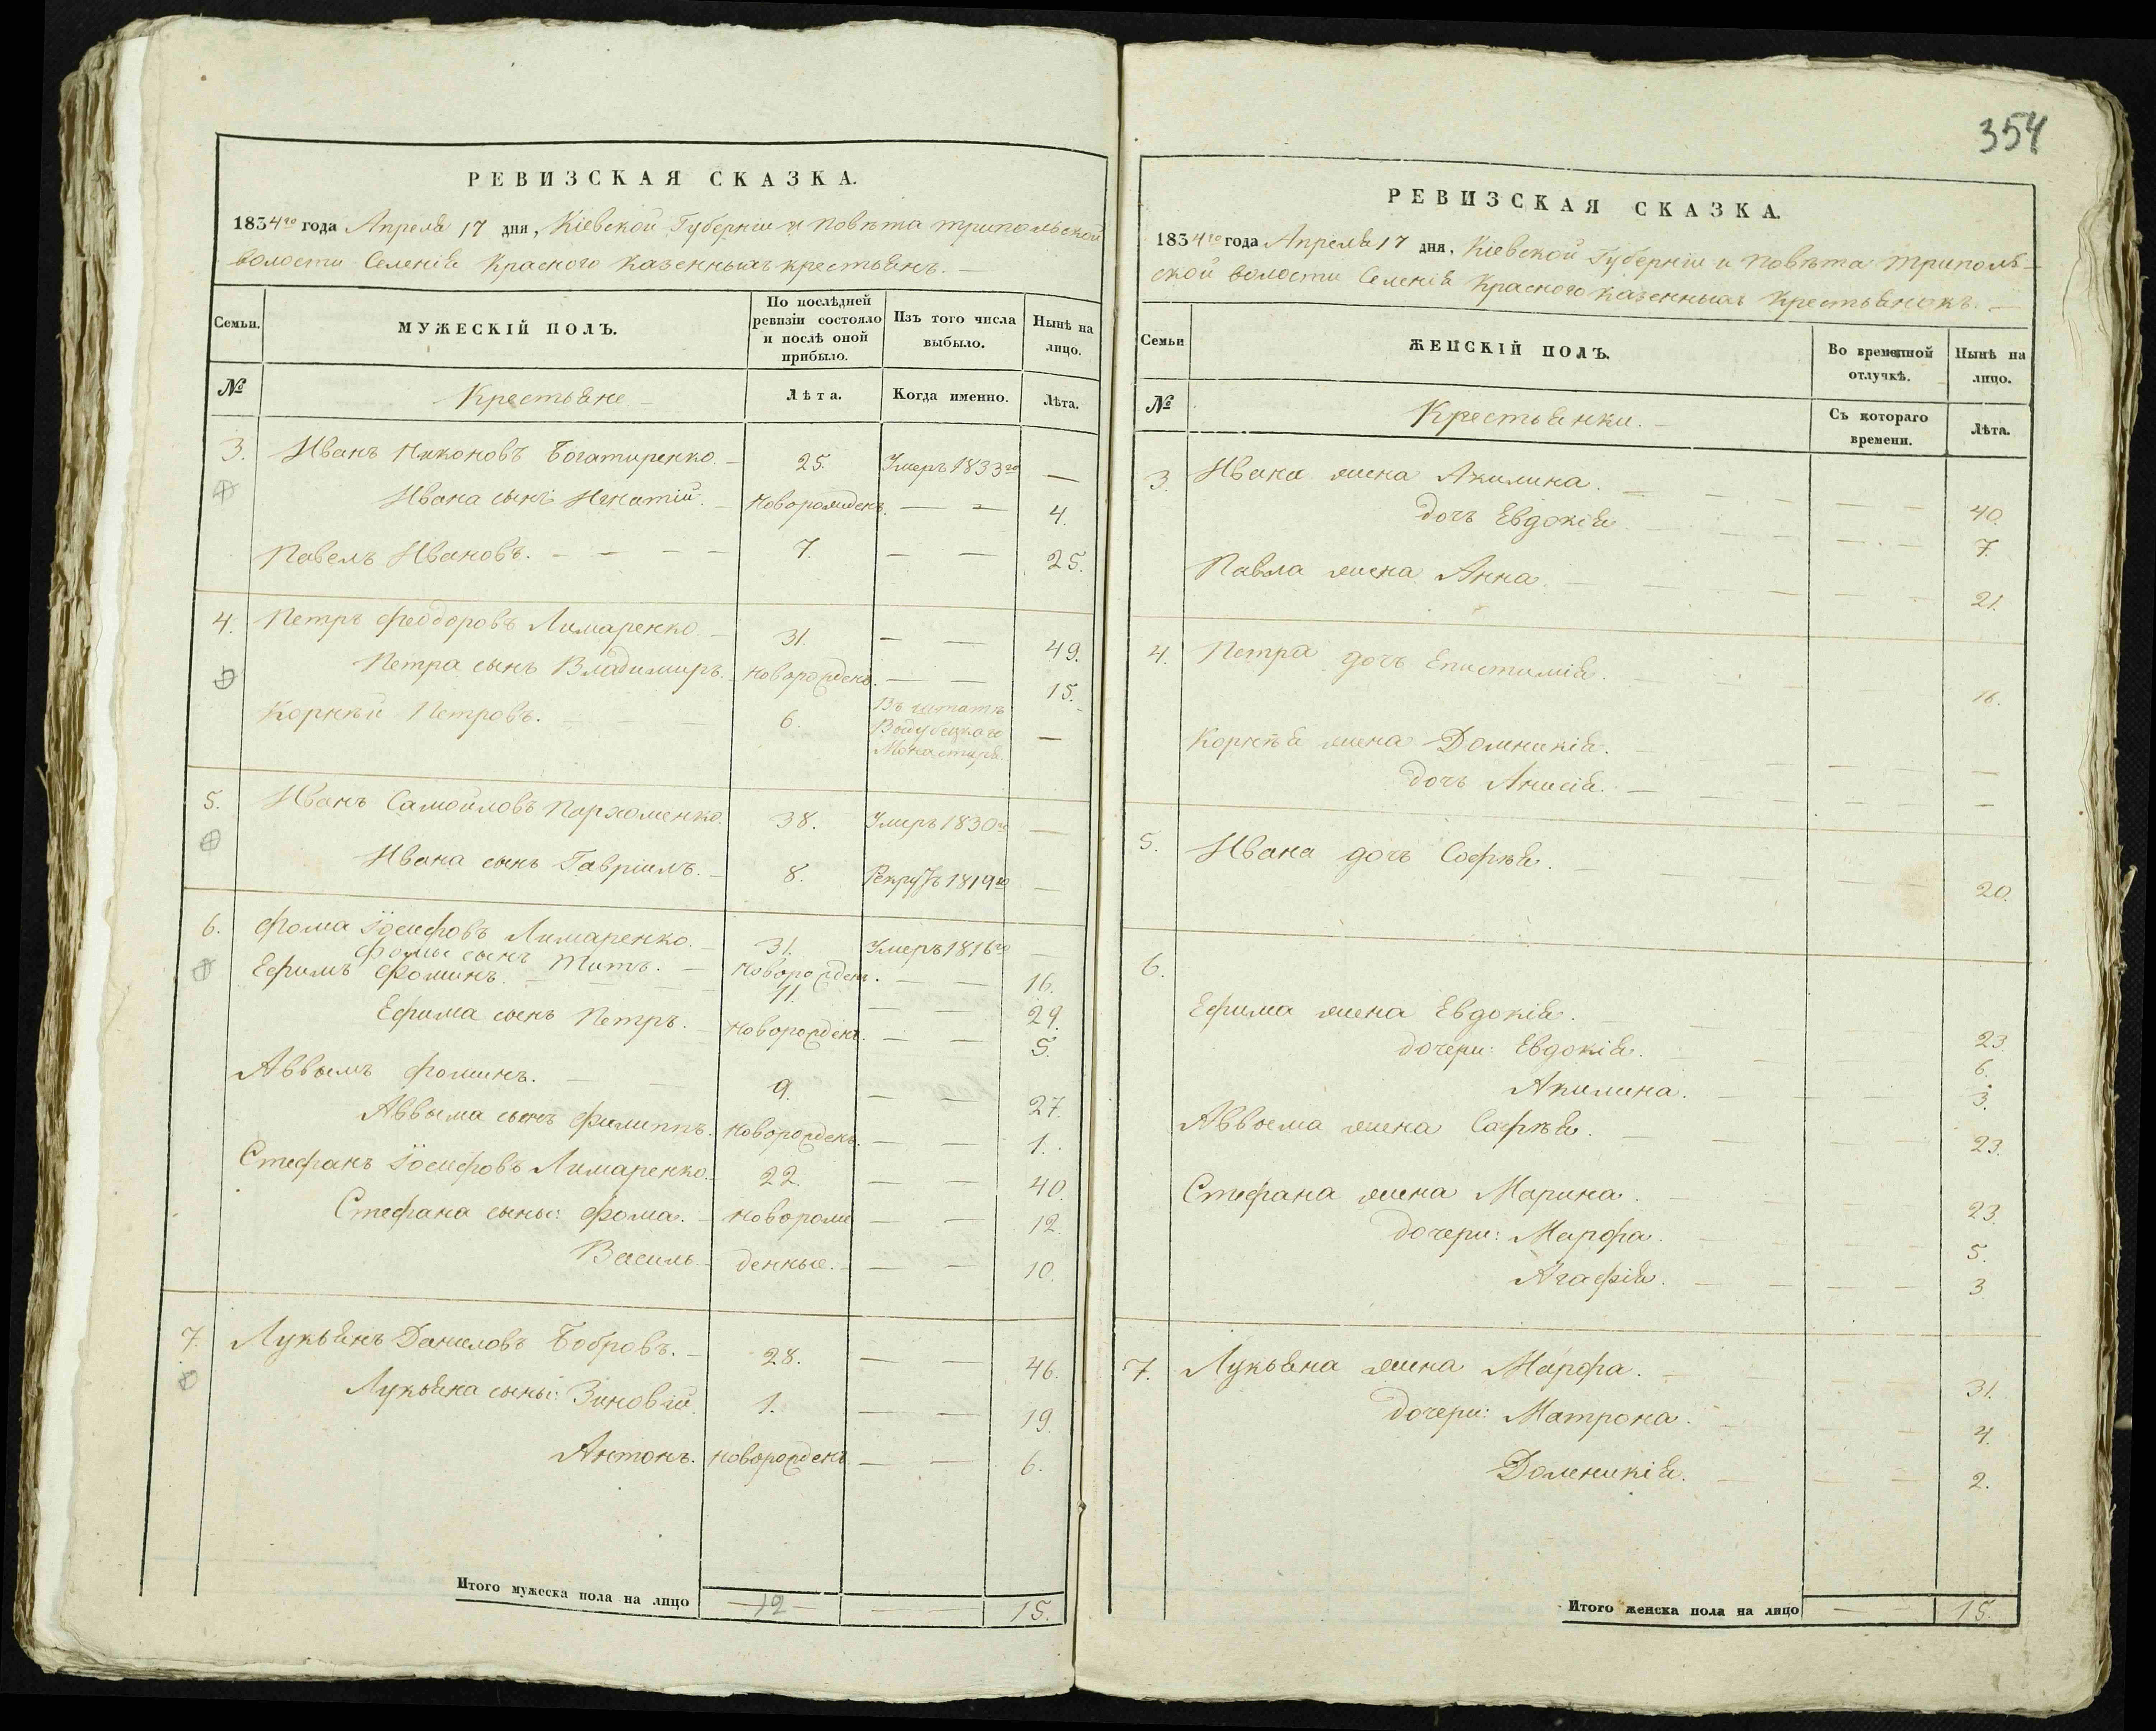 РЕВИЗСКАЯ СКАЗКА.
1834го года Апреля 17 дня, Кіевской Губерніи и Повѣта Трипольской
волости Селенія Красного Казенныхъ крестьянъ.
Семьи.
МУЖЕСКІЙ ПОЛЪ.
По послѣдней
ревизіи состояло
и послѣ оной
прибыло.
Изъ того числа
выбыло.
Нынѣ на
лицо.
№
Крестьяне
Лѣта.
Когда именно.
Лѣта.
3. Иванъ Никоновъ Богатиренко. 25. Умеръ 1833го —
Ивана сынъ Игнатій. Новорожденъ. — — 4.
Павелъ Ивановъ. 7. — — 25.
4. Петръ Феодоровъ Лимаренко. 31. — — 49.
Петра сынъ Владимиръ. новорожденъ. — — 15.
Корнѣй Петровъ. 6. Въ штатъ
Выдубецкого —
Монастиря.
5. Иванъ Самойловъ Пархоменко. 38. Умеръ 1830го —
Ивана сынъ Гавріилъ. 8. Рекрутъ 1819го —
6. Фома Іосифовъ Лимаренко. 31. Умеръ 1816го —
Фомы сынъ Титъ. Новорожденъ. — — 16.
Ефимъ Фоминъ. 11. — — 29.
Ефима сынъ Петръ. Новорожденъ. — — 5.
Аввымъ Фоминъ. 9. — — 27.
Аввыма сынъ Филиппъ. Новорожденъ. — — 1.
Стефанъ Іосифовъ Лимаренко. 22. — — 40.
Стефана сыны: Фома. новорож — — 12.
Василь. денные. — — 10.
7. Лукьянъ Даниловъ Бобровъ. 28. — — 46.
Лукьяна сыны: Зиновій 1. — — 19.
Антонъ. новорожденъ — — 6.
Итого мужеска пола на лицо — 12 — — — 15.
354
РЕВИЗСКАЯ СКАЗКА.
1834го года Апреля 17 дня. Кіевской Губерніи и Повѣта Триполь-
ской волости Селенія Красного казенныхъ Крестьянокъ. —
Семьи
ЖЕНСКІЙ ПОЛЪ.
Во временной
отлучкѣ.
Нынѣ на
лицо.
№
Крестьянки.
Съ котораго
времени.
Лѣта.
3. Ивана жена Акилина. — — 40.
дочь Евдокія — — 7.
Павла жена Анна. — — 21.
4. Петра дочь Епистимія. 16.
Корнѣя жена Доминикія. — — —
дочь Анисія. — — —
5. Ивана дочь Софія. — — 20.
6.
Ефима жена Евдокія. 23.
дочери: Евдокія. 6.
Акилина. 3.
Аввыма жена Софія. 23.
Стефана жена Марина. 23.
дочери: Марфа. 5.
Агафія. 3
7. Лукьяна жена Марфа. 31.
дочери: Матрона. 4.
Доминикія. 2.
Итого женска пола на лицо — — 15.